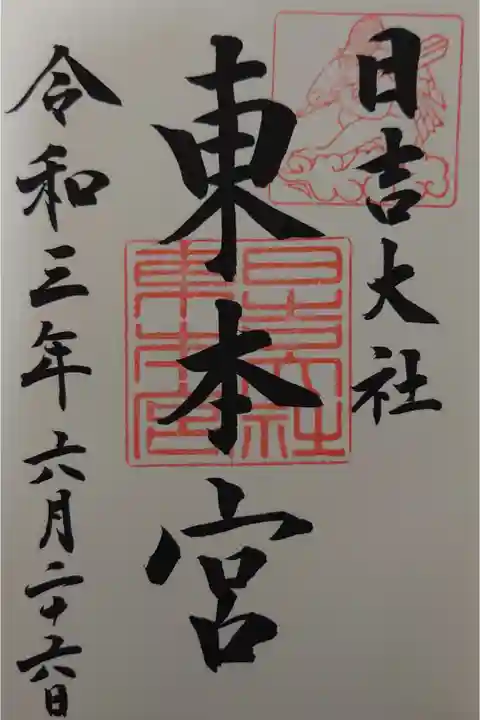 日吉大社
東本宮
日吉大社
東本宮
令和三年六月二十六日